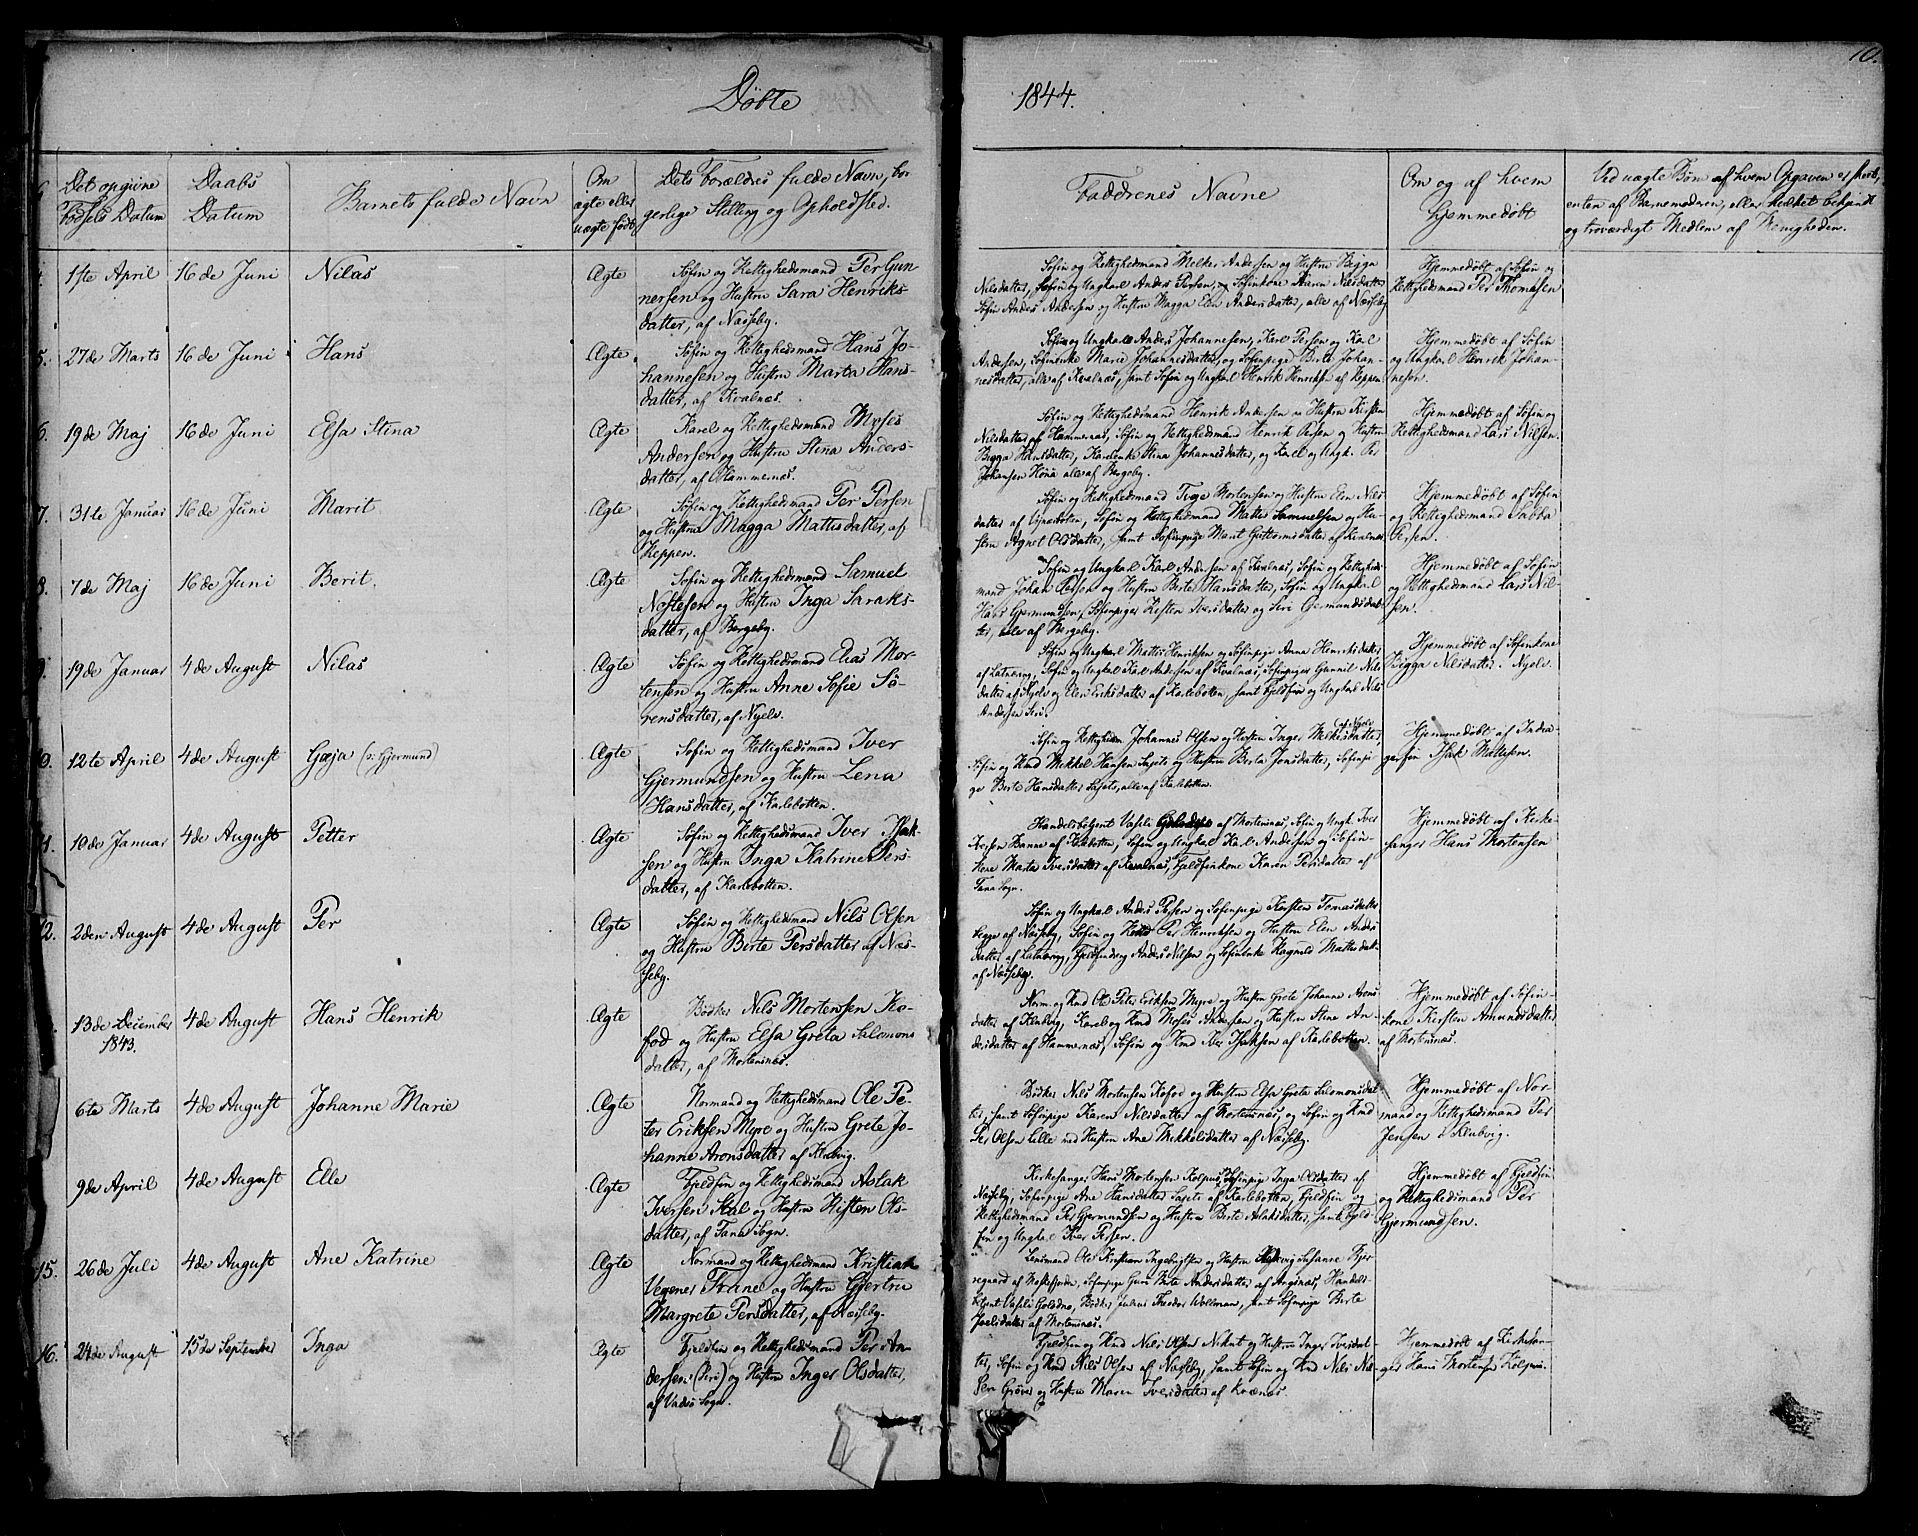 Døbte
1844.
10.
Det opgivne
Fødsels Datum
Daabs
Datum
Barnets fulde Navn
Om
ægte eller
uægte født
Dets Forældres fulde Navn, bor
gerlige Stilling og Opholdsted.
Faddrenes Navne
Om og af hvem
hjemmedøbt
Ved uægte Børn af hvem Opgaven er skeet,
enten af Barnemoderen, eller hvilket bekjendt
og troværdigt Medlem af Menigheden.
4.
1ste April
16de Juni
Nilas
Ægte
Søfin og Rettighedsmand Per Gun
nersen og Hustru Sara Henriks-
datter, af Næsseby.
Søfin og Rettighedsmand Melker Andersen og Hustru Bigga
Nilsdatter, Søfin og Ungkarl Anders Persen, og Søfinkone Karen Nilsdatter
Søfin Anders Andersen og Hustru Magga Elen Andersdatter, alle af Næsseby
Hjemmedøbt af Søfin og
Rettighedsmand Per Thomassen
5.
27de Marts
16de Juni
Hans
Ægte
Søfin og Rettighedsmand Hans Jo-
hannesen og Hustru Marta Hans-
datter, af Kvalnæs.
Søfin og Ungkarl Anders Johannesen, Karl Persen og Karl
Andersen, Søfinenke Marie Johannesdatter, og Søfinpige Berte Johan-
nesdatter, alle af Kvalnæs, samt Søfin og Ungkarl Henrik Henriksen af Keppen
Hjemmedøbt af Søfin
og Ungkarl Henrik Johan-
nesen.
6.
19de Maj
16de Juni
Elsa Stina
Ægte
Karel og Rettighedsmand Moses
Andersen og Hustru Stina Anders-
datter, af Hammernæs.
Søfin og Rettighedsmand Henrik Andersen og Hustru Kirsten
Nilsdatter af Hammernæs, Søfin og Rettighedsmand Henrik Persen og Hustru
Bigga Hansdatter, Karelenke Stina Johannesdatter, og Karel og Ungk. Per
Johansen Høna alle af Bergeby.
Hjemmedøbt af Søfin og
Rettighedsmand Lars Nilsen.
7.
31te Januar
16de Juni
Marit
Ægte
Søfin og Rettighedsmand Per Persen
og Hustru Magga Mattisdatter, af
Keppen.
Søfin og Rettighedsmand Tuge Mortensen og Hustru Elen Nils
datter af Søfin og Rettighedsmand Mattis Samuelsen og Hu-
stru Agnet Olsdatter, samt Søfinpige Marit Guttormsdatter af
Hjemmedøbt af Søfin
og Rettighedsmand Sabba
Persen.
8.
7de Maj
16de Juni
Berit.
Ægte
Søfin og Rettighedsmand Samuel
Nostesen og Hustru Inga Saraks-
datter, af Bergeby.
Søfin og Ungkarl Karl Andersen af Kvalnæs, Søfin og Rettigheds-
mand Johan og Hustru Berte Hansdatter, Søfin og Ungkarl
Hans Gjermundsen, Søfinpiger Kirsten Iversdatter og Siri Gjermundsdat-
ter, alle af Bergeby.
Hjemmedøbt af Søfin
og Rettighedsmand Lars Nil-
sen.
9.
19de Januar
4de August
Nilas
Ægte
Søfin og Rettighedsmand Clas Mor-
tensen og Hustru Anne Sofie Sø-
rensdatter, af Nyelv.
Søfin og Ungkarl Mattis Henriksen og Søfinpige Anne Henriksdatter
af Latnæring, Søfin og Ungkarl Karl Andersen af Kvalnæs, Søfinpiger Gunnil Nils
datter af Nyelv og Elen Eriksdatter af Karlebotten, samt Fjeldfin og Ungkarl Nils
Andersen Siri.
Hjemmedøbt af Søfinkone
Bigga Nilsdatter. Nyelv.
10.
12te April
4de August
Gæja (ɔ: Gjermund)
Ægte
Søfin og Rettighedsmand Iver
Gjermundsen og Hustru Lena
Hansdatter, af Karlebotten.
Søfin og Rettighedsm Johannes Olsen og Hustru Inger Mikkelsdatter, af Nyelv
Søfin og Rmd Mikkel Hansen Sajets og Hustru Berta Jonsdatter, Søfinpi
ge Berte Hansdatter Sajets, alle af Karlebotten.
Hjemmedøbt af Indra-
gerfin Isak Mattisen.
11.
10de Januar
4de August
Petter
Ægte
Søfin og Rettighedsmand Iver Isak-
sen og Hustru Inga Katrine Pers-
datter, af Karlebotten.
Handelsbetjent Vasili Golodne af Mortensnæs, Søfin og Ungk. Iver
Iversen Banne af Karlebotten, Søfin og Ungkarl Karl Andersen og Søfin-
kone Marta Iversdatter af Kvalnæs, Fjeldfinkone Karen Persdatter af
Tana Sogn.
Hjemmedøbt af Kirke-
sanger Hans Mortensen
12.
2den August
4de August
Per
Ægte
Søfin og Rettighedsmand Nils Olsen
og Hustru Birte Persdatter af Næs-
seby.
Søfin og Ungkarl Anders Persen og Søfinpige Kirsten Tomasdatter
begge af Næsseby, Søfin og Rmd Per Henriksen og Hustru Elen Anders
datter af Latnæring, Fjeldfindreng Anders Nilsen og Søfinenke Ragnild Mattisdatter
af Næsseby.
13de December
1843.
4de August
Hans Henrik
Ægte
Bødker Nils Mortensen Ko-
fod og Hustru Elsa Greta Salomons
datter, af Mortensnæs.
Norm. og Rmd Ole Peter Eriksen Myre og Hustru Grete Johanne Arons
datter af Klubvig, Karel og Rmd Moses Andersen og Hustru Stine An-
dersdatter af Hammernæs, Søfin og Rmd Iver Isaksen af Karlebotten.
Hjemmedøbt af Søfin-
kone Kirsten Amundsdatter
af Mortensnæs.
6te Marts
4de August
Johanne Marie
Ægte
Normand og Rettighedsmand Ole Pe-
ter Eriksen Myre og Hustru Grete Jo-
hanne Aronsdatter af Klubvig.
Bødker Nils Mortensen Kofod og Hustru Elsa Greta Salomonsdat-
ter, samt Søfinpige Karen Nilsdatter af Mortensnæs, og Søfin og Rmd
Per Olsen Lille med Hustru Ane Mikkelsdatter af Næsseby.
Hjemmedøbt af Nor-
mand og Rettighedsmand Per
Jensen i Klubvig.
9de April
4de August
Elle
Ægte
Fjeldfin og Rettighedsmand Aslak
Iversen Stal og Hustru Kirsten Ols-
datter, af Tana Sogn.
Kirkesanger Hans Mortensen Kolpus, Søfinpige Inga Olsdatter af
Næsseby, Søfinpige Ane Hansdatter Sajets af Karlebotten, Fjeldfin og
Rettighedsmand Per Gjermundsen og Hustru Berte Aslaksdatter, samt Fjeld-
fin og Ungkarl Iver Persen.
Hjemmedøbt af Fjeldfin
og Rettighedsmand Per
Gjermundsen.
15.
26de Juli
4de August
Ane Katrine
Ægte
Normand og Rettighedsmand Kristian
Vegener Frane og Hustru Gjertru
Margrete Persdatter, af Næsseby.
Lensmand Ole Kristian Ingebrigtsen og Hustru Hedevig Susanne Fjer
af Næssefjorden, Søfinpige Guri Birte Andersdatter af Angsnæs, Handels-
betjent Vasili Golodne, Bødker Julius Theodor Wollman, samt Søfinpige Birte
Poulsdatter af Mortensnæs.
16.
24de August
15de September
Inga
Ægte
Fjeldfin og Rettighedsmand Per An
dersen (Siri) og Hustru Inger Olsdatter,
af Vadsø Sogn.
Fjeldfin og Rmd Nils Olsen Nikut og Hustru Inger Iversdat-
ter, Søfin og Rmd Nils Olsen af Næsseby, samt Søfin og Rmd Nils Nil-
sen Grøver og Hustru Maren Iversdatter af Kvænæs.
Hjemmedøbt af Kirkesan-
ger Hans Mortensen Kolpus.